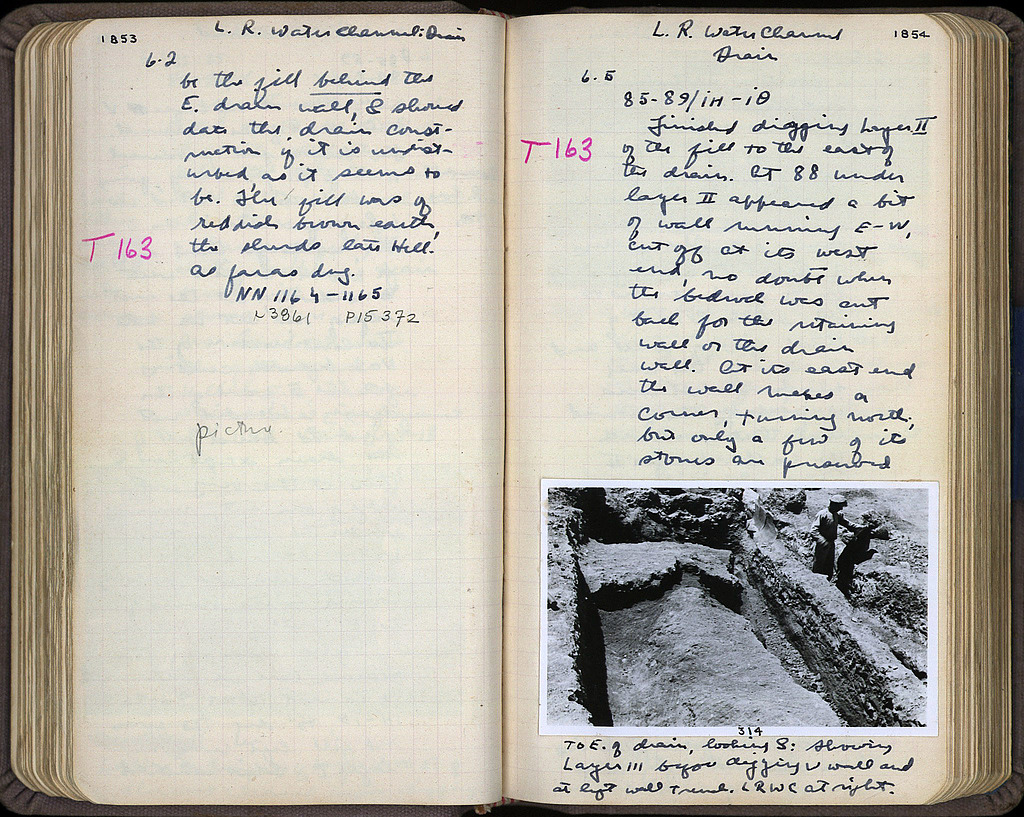 1853
L. R. Water Channel: Drain
6.2
be the fill behind the
E. drain wall, & should
date the drain const-
ruction if it is undist-
urbed as it seems to
be. The fill was of
reddish brown earth,
the sherds late Hell.
as far as dug.
T 163
NN 1164-1165
L3861 P15372
picture.
1854
L. R. Water Channel
Drain
6.5
85-89/ιΗ-ιΘ
Finished digging Layer II
T 163
of the fill to the east of
the drain. At 88 under
layer II appeared a bit
of wall running E-W,
cut off at its west
end, no doubt when
the bedrock was cut
back for the retaining
wall or the drain
wall. At its east end
the wall makes a
corner, turning north,
but only a few of its
stones are preserved
314
To E. of drain, looking S: showing
Layer III before digging wall and
at left wall trench. LRWC at right.